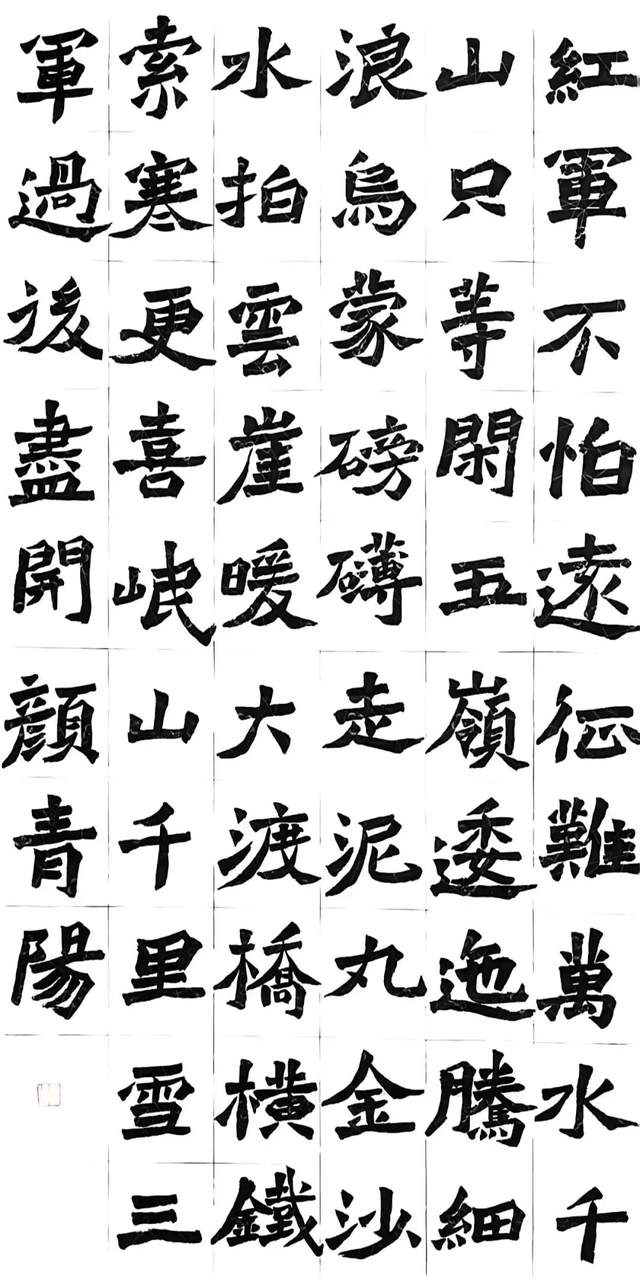 紅軍不怕遠征難萬水千
山只等閑五嶺逶迤騰細
浪烏蒙磅礴走泥丸金沙
水拍雲崖暖大渡橋橫鐵
索寒更喜岷山千里雪三
軍過後盡開顔青陽